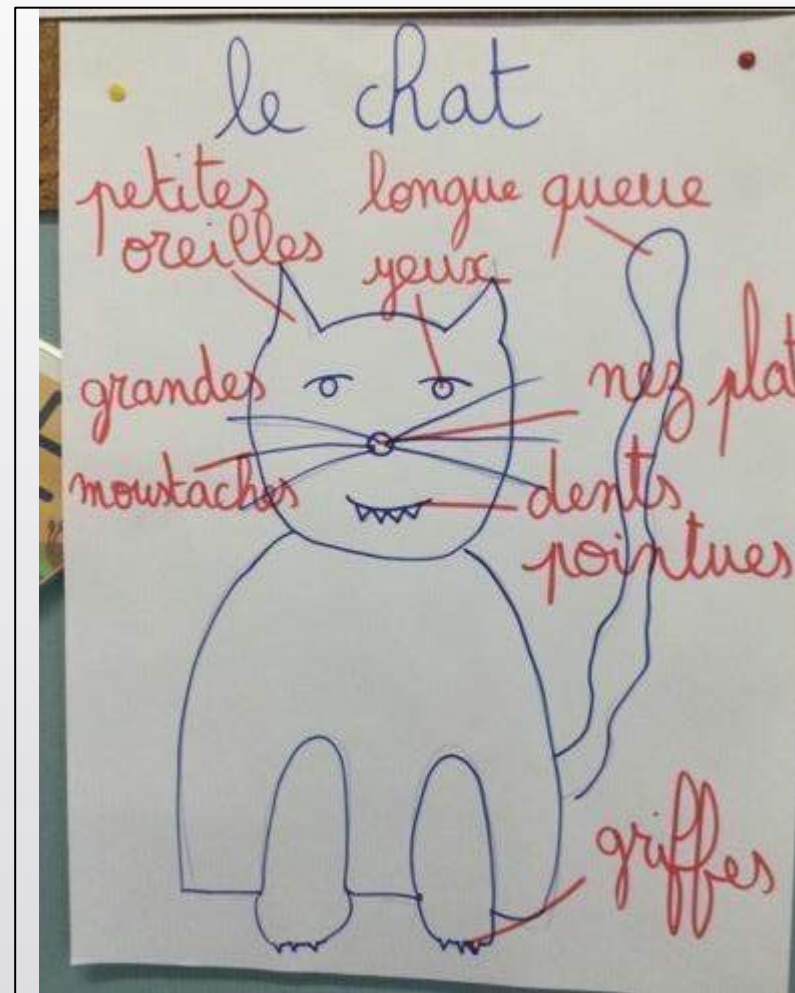 le chat
petites
oreilles
longue queue
yeux
grandes
moustaches
nez plat
dents
pointues
griffes